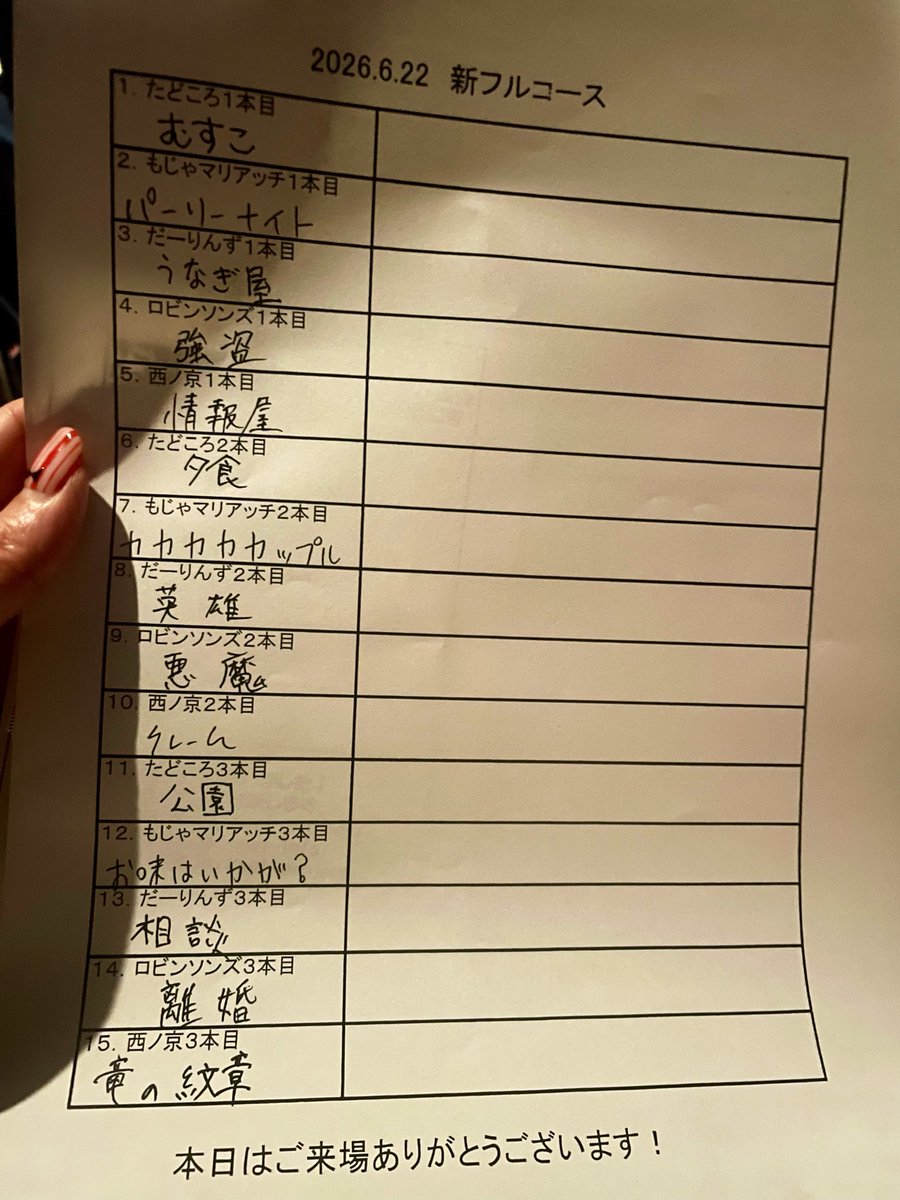 2026.6.22 新フルコース
1. たどころ1本目
むすこ
2. もじゃマリアッチ1本目
パーリーナイト
3. だーりんず1本目
うなぎ屋
4. ロビンソンズ1本目
強盗
5. 西ノ京1本目
情報屋
6. たどころ2本目
夕食
7. もじゃマリアッチ2本目
カカカカカップル
8. だーりんず2本目
英雄
9. ロビンソンズ2本目
悪魔
10. 西ノ京2本目
クレーム
11. たどころ3本目
公園
12. もじゃマリアッチ3本目
お味はいかが?
13. だーりんず3本目
相談
14. ロビンソンズ3本目
離婚
15. 西ノ京3本目
竜の紋章
本日はご来場ありがとうございます!